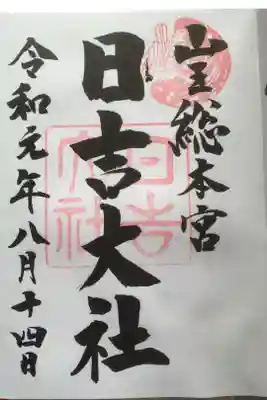 山王総本宮
日吉大社
令和元年八月十四日
日吉大社